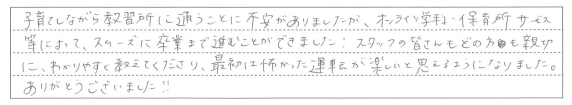 子育てしながら教習所に通うことに不安がありましたが、オンライン学科・保育所サービス
等によって、スムーズに卒業まで進むことができました！スタッフの皆さんもどの方も親切
に、わかりやすく教えてくださり、最初は怖かった運転が楽しいと思えるようになりました。
ありがとうございました!!